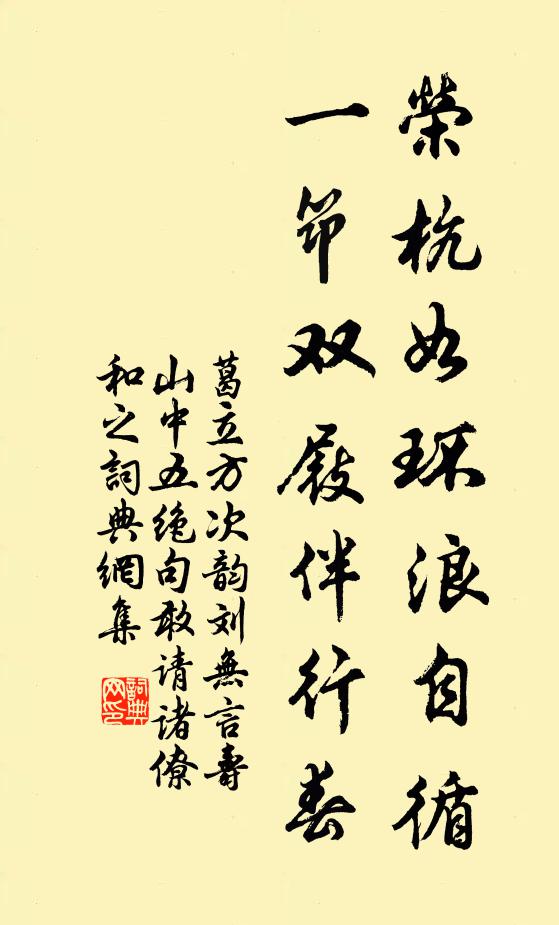 榮杭如环浪自循
一筇双屐伴行春
葛立方次韵刘無言壽
山中五绝句敢请诸僚
和之詞典網集
詞典网印